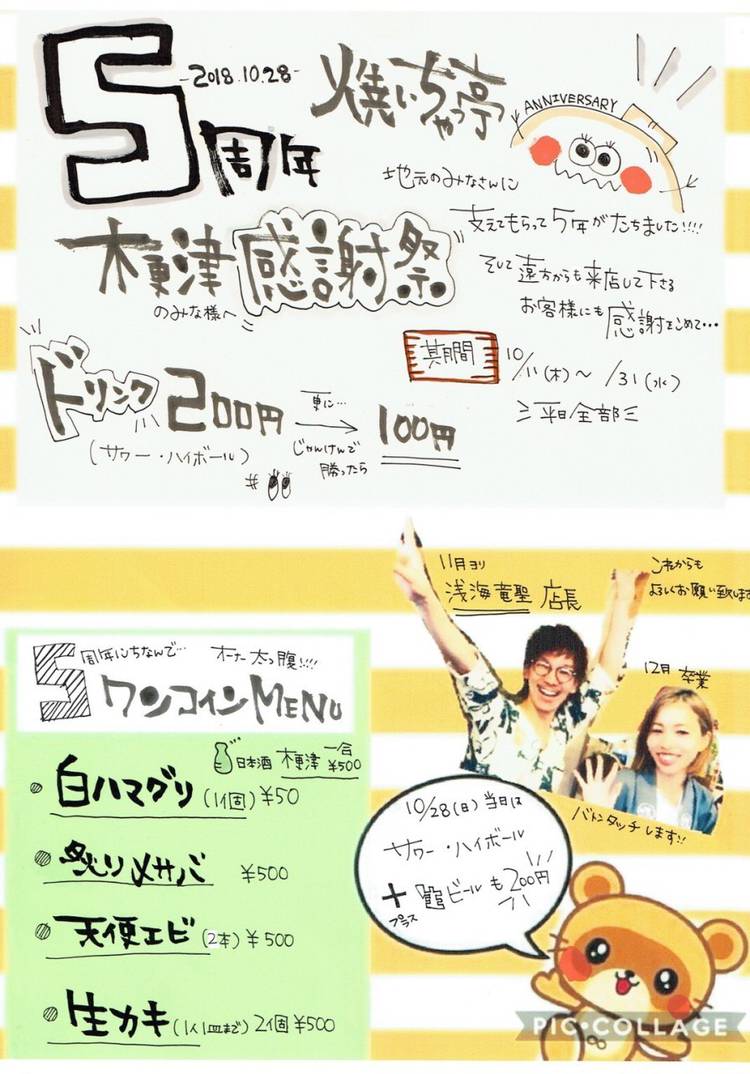 5周年
-2018.10.28-
焼いちゃっ亭
ANNIVERSARY
地元のみなさんに
支えてもらって5年がたちました!!!!
そして遠方からも来店して下さる
お客様にも感謝をこめて…
木更津
のみな様へ
感謝祭
期間
10/11(木)〜10/31(水)
平日全部
ドリンク200円
(サワー・ハイボール)
更に…
じゃんけんで
勝ったら
100円
11月ヨリ
浅海竜聖 店長
これからも
よろしくお願い致します
12月 卒業
バトンタッチします!!
5周年にちなんで…
オーナー太っ腹!!!!
ワンコインMENU
日本酒 木更津 一合
¥500
白ハマグリ(1個)¥50
炙りメサバ ¥500
天使エビ(2本)¥500
生カキ(1人1皿まで)2個¥500
10/28(日)当日は
サワー・ハイボール
+
プラス
ビールも200円
PIC•COLLAGE